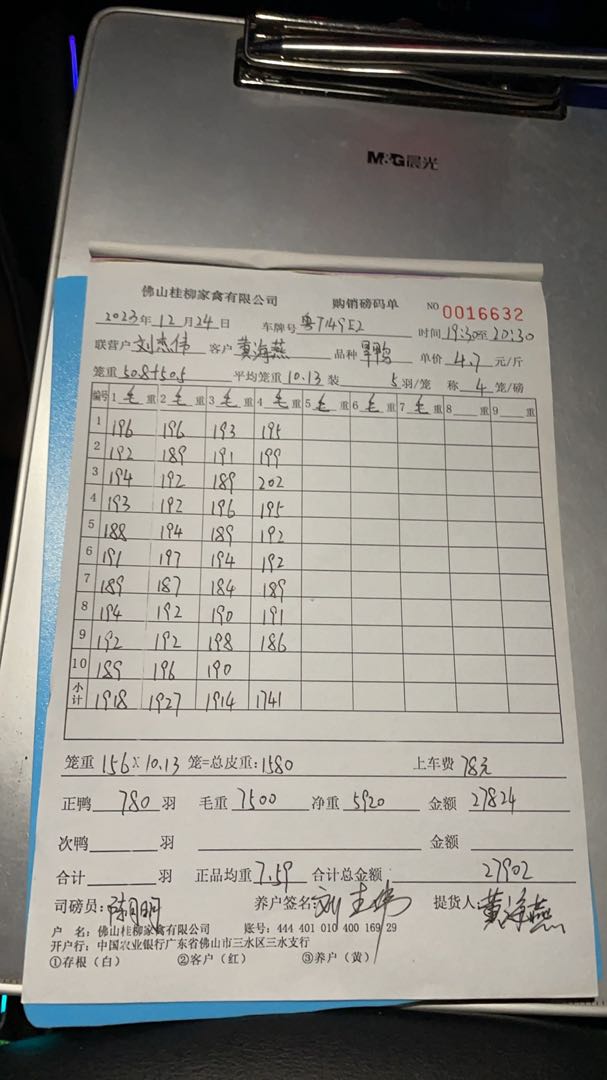 M&G晨光
佛山桂柳家禽有限公司 购销磅码单 NO 0016632
2023年12月24日 车牌号 粤T149E2 时间 19:30至20:30
联营户 刘志伟 客户 黄海燕 品种 旱鸭 单价 4.7 元/斤
笼重 508+505 平均笼重 10.13 装 5 羽/笼 称 4 笼/磅
编号 1 毛 重 2 毛 重 3 毛 重 4 毛 重 5 毛 重 6 毛 重 7 毛 重 8 重 9 重
1 196 196 193 195
2 192 189 191 199
3 194 192 189 202
4 193 192 196 195
5 188 194 189 192
6 191 197 194 192
7 189 187 184 189
8 194 192 190 191
9 192 192 198 186
10 189 196 190
小计 1918 1927 1914 1741
笼重 156 X 10.13 笼=总皮重: 1580 上车费 78元
正鸭 780 羽 毛重 7500 净重 5920 金额 27824
次鸭 羽 金额
合计 羽 正品均重 7.59 合计总金额 27902
司磅员: 养户签名: 刘志伟 提货人: 黄海燕
户 名: 佛山桂柳家禽有限公司 账号: 444 401 010 400 169 29
开户行: 中国农业银行广东省佛山市三水区三水支行
①存根(白) ②客户(红) ③养户(黄)